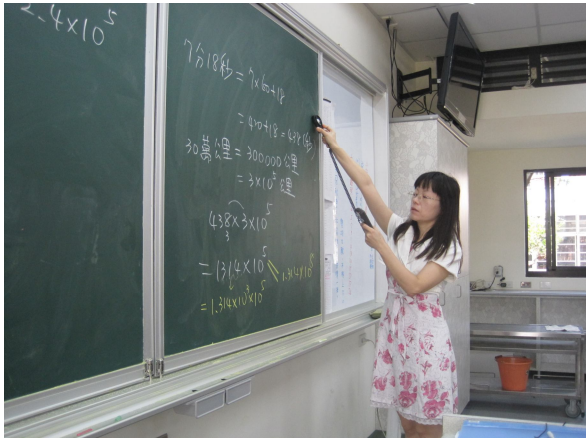 2.4×10⁵
7分18秒 = 7×60+18
= 420+18 = 438(秒)
30萬公里 = 300000公里
= 3×10⁵公里
438×3×10⁵
3
= 1314×10⁵
= 1.314×10³×10⁵